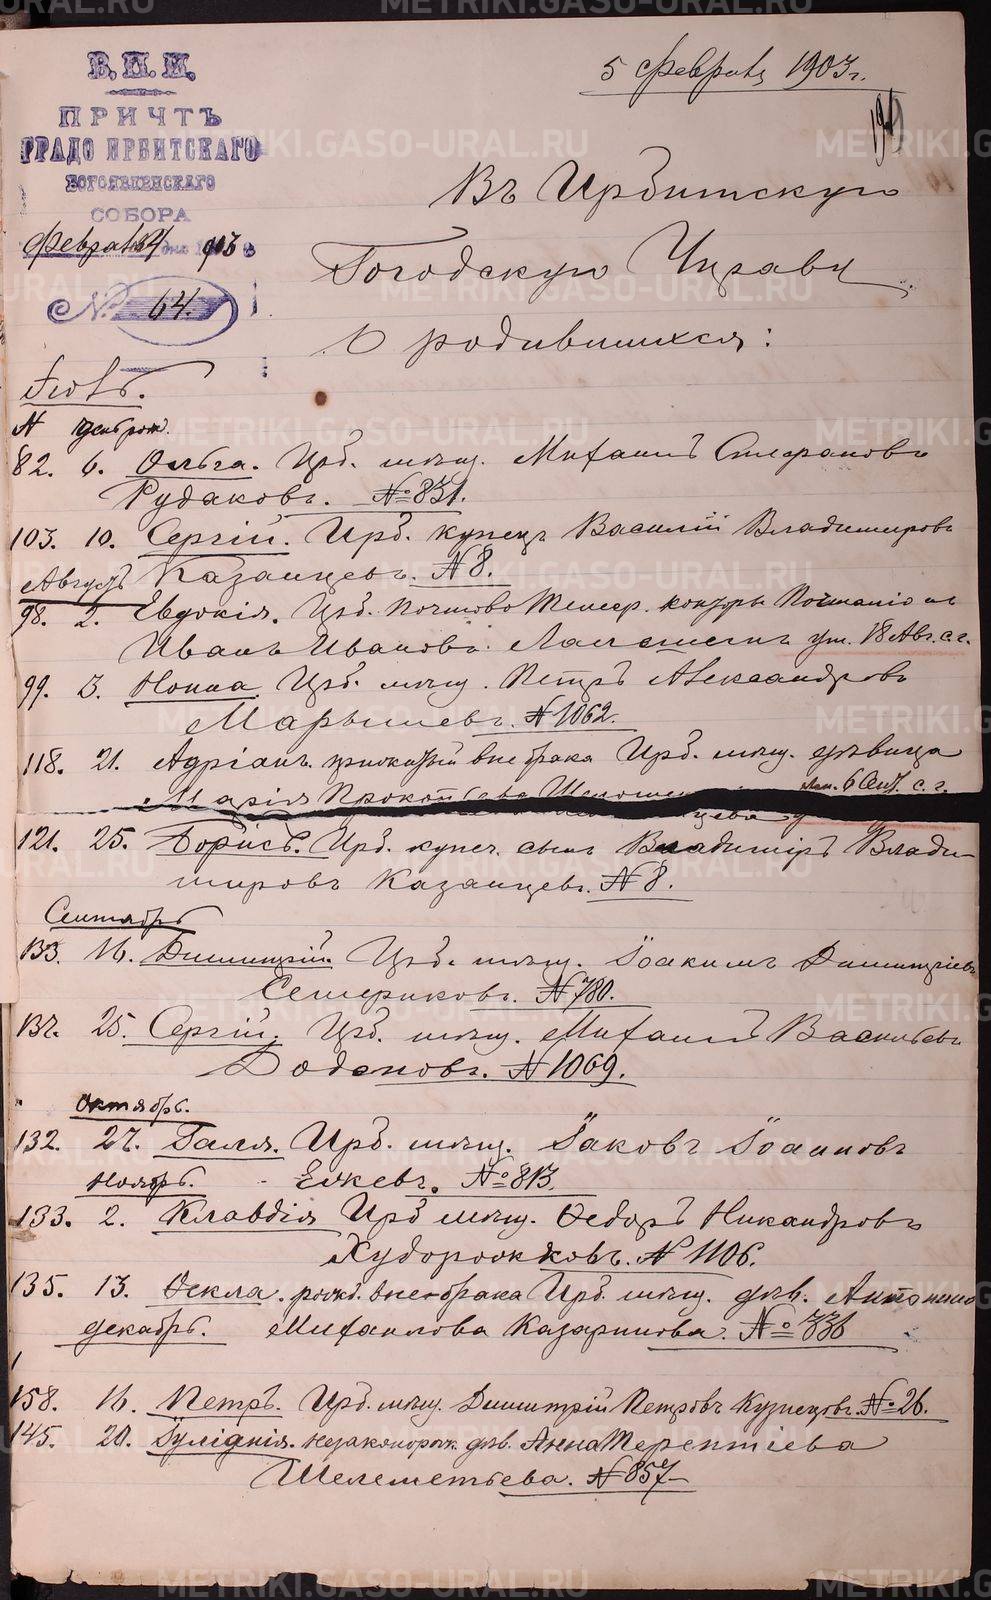 5 Февраля 1903 г.
В.П.И.
ПРИЧТЪ
ГРАДО ИРБИТСКАГО
БОГОЯВЛЕНСКАГО
СОБОРА
Февраля 4 дня 1903
№ 64.
Въ Ирбитскую
Городскую Управу
О родившихся:
Іюль.
№ день рож.
82. 6. Ольга. Ирб. мѣщ. Михаилъ Стефановъ
Рудаковъ. № 831.
103. 10. Сергій. Ирб. купецъ Василій Владимировъ
Казанцевъ. № 8.
Августъ
98. 2. Евдокія. Ирб. Почтово Телегр. конторы
Иванъ Ивановъ ум. 18 Авг. с. г.
99. 3. Нонна. Ирб. мѣщ. Петръ Александровъ
Марышевъ. № 1062.
118. 21. Адріанъ. внѣ брака Ирб. мѣщ. дѣвица
Марія Прокопьева 6 Сент. с. г.
121. 25. Борисъ. Ирб. купеч. сынъ Владиміръ Влади-
мировъ Казанцевъ. № 8.
Сентябрь
133. 16. Димитрій. Ирб. мѣщ. Іоакимъ Димитріевъ
Семериковъ. № 780.
25. Сергій. Ирб. мѣщ. Михаилъ Васильевъ
Додоновъ. № 1069.
Октябрь.
132. 27. Галя. Ирб. мѣщ. Іаковъ Іоанновъ
Ноябрь. Елжевъ. № 813.
133. 2. Клавдія Ирб мѣщ. Ѳедоръ Никандровъ
Худорожковъ. № 1106.
135. 13. Ѳекла. рожд. внѣ брака Ирб. мѣщ. дѣв. Антонина
декабрь. Михаилова Казаринова. № 336
158. 16. Петръ. Ирб. мѣщ. Димитрій Петровъ Кузнецовъ. № 26.
145. 20. Іуліанія. незаконорож. дѣв. Анна Терентіева
Шелеметьева. № 857